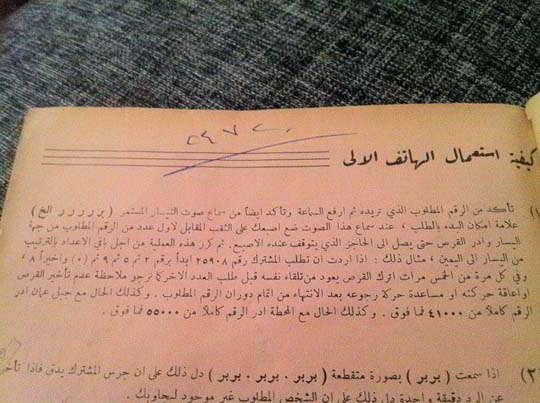 كيفية استعمال الهاتف الالي
تأكد من الرقم المطلوب الذي تريده ثم ارفع السماعة وتأكد ايضاً من سماع صوت التيار المستمر ( بررررر الخ )
علامة امكان البدء بالطلب ، عند سماع هذا الصوت ضع اصبعك على الثقب المقابل لاول عدد من الرقم المطلوب من جهة
اليسار وادر القرص حتى يصل الى الحاجز الذي يتوقف عنده الاصبع. ثم كرر هذه العملية من اجل باقي الاعداد بالترتيب
من اليسار الى اليمين ، مثال ذلك : اذا اردت ان تطلب المشترك رقم ٢٥٩٠٨ ابدأ برقم ٢ ثم ٥ ثم ٩ ثم (٠) واخيراً ٨ ،
وفي كل مرة من الخمس مرات اترك القرص يعود من تلقاء نفسه قبل طلب العدد الاخر كما نرجو ملاحظة عدم تأخير القرص
او اعاقة حركته او مساعدة حركة رجوعه بعد الانتهاء من اتمام دوران الرقم المطلوب . وكذلك الحال مع جبل عمان ادر
الرقم كاملاً من ٤١٠٠٠ فما فوق . وكذلك الحال مع المحطة ادر الرقم كاملاً من ٥٥٠٠٠ فما فوق .
٢) اذا سمعت ( بربر ) بصورة متقطعة ( بربر . بربر . بربر ) دل ذلك على ان جرس المشترك يدق فاذا تأخر
عن الرد دقيقة واحدة دل ذلك على ان الشخص المطلوب غير موجود ليجاوبك .